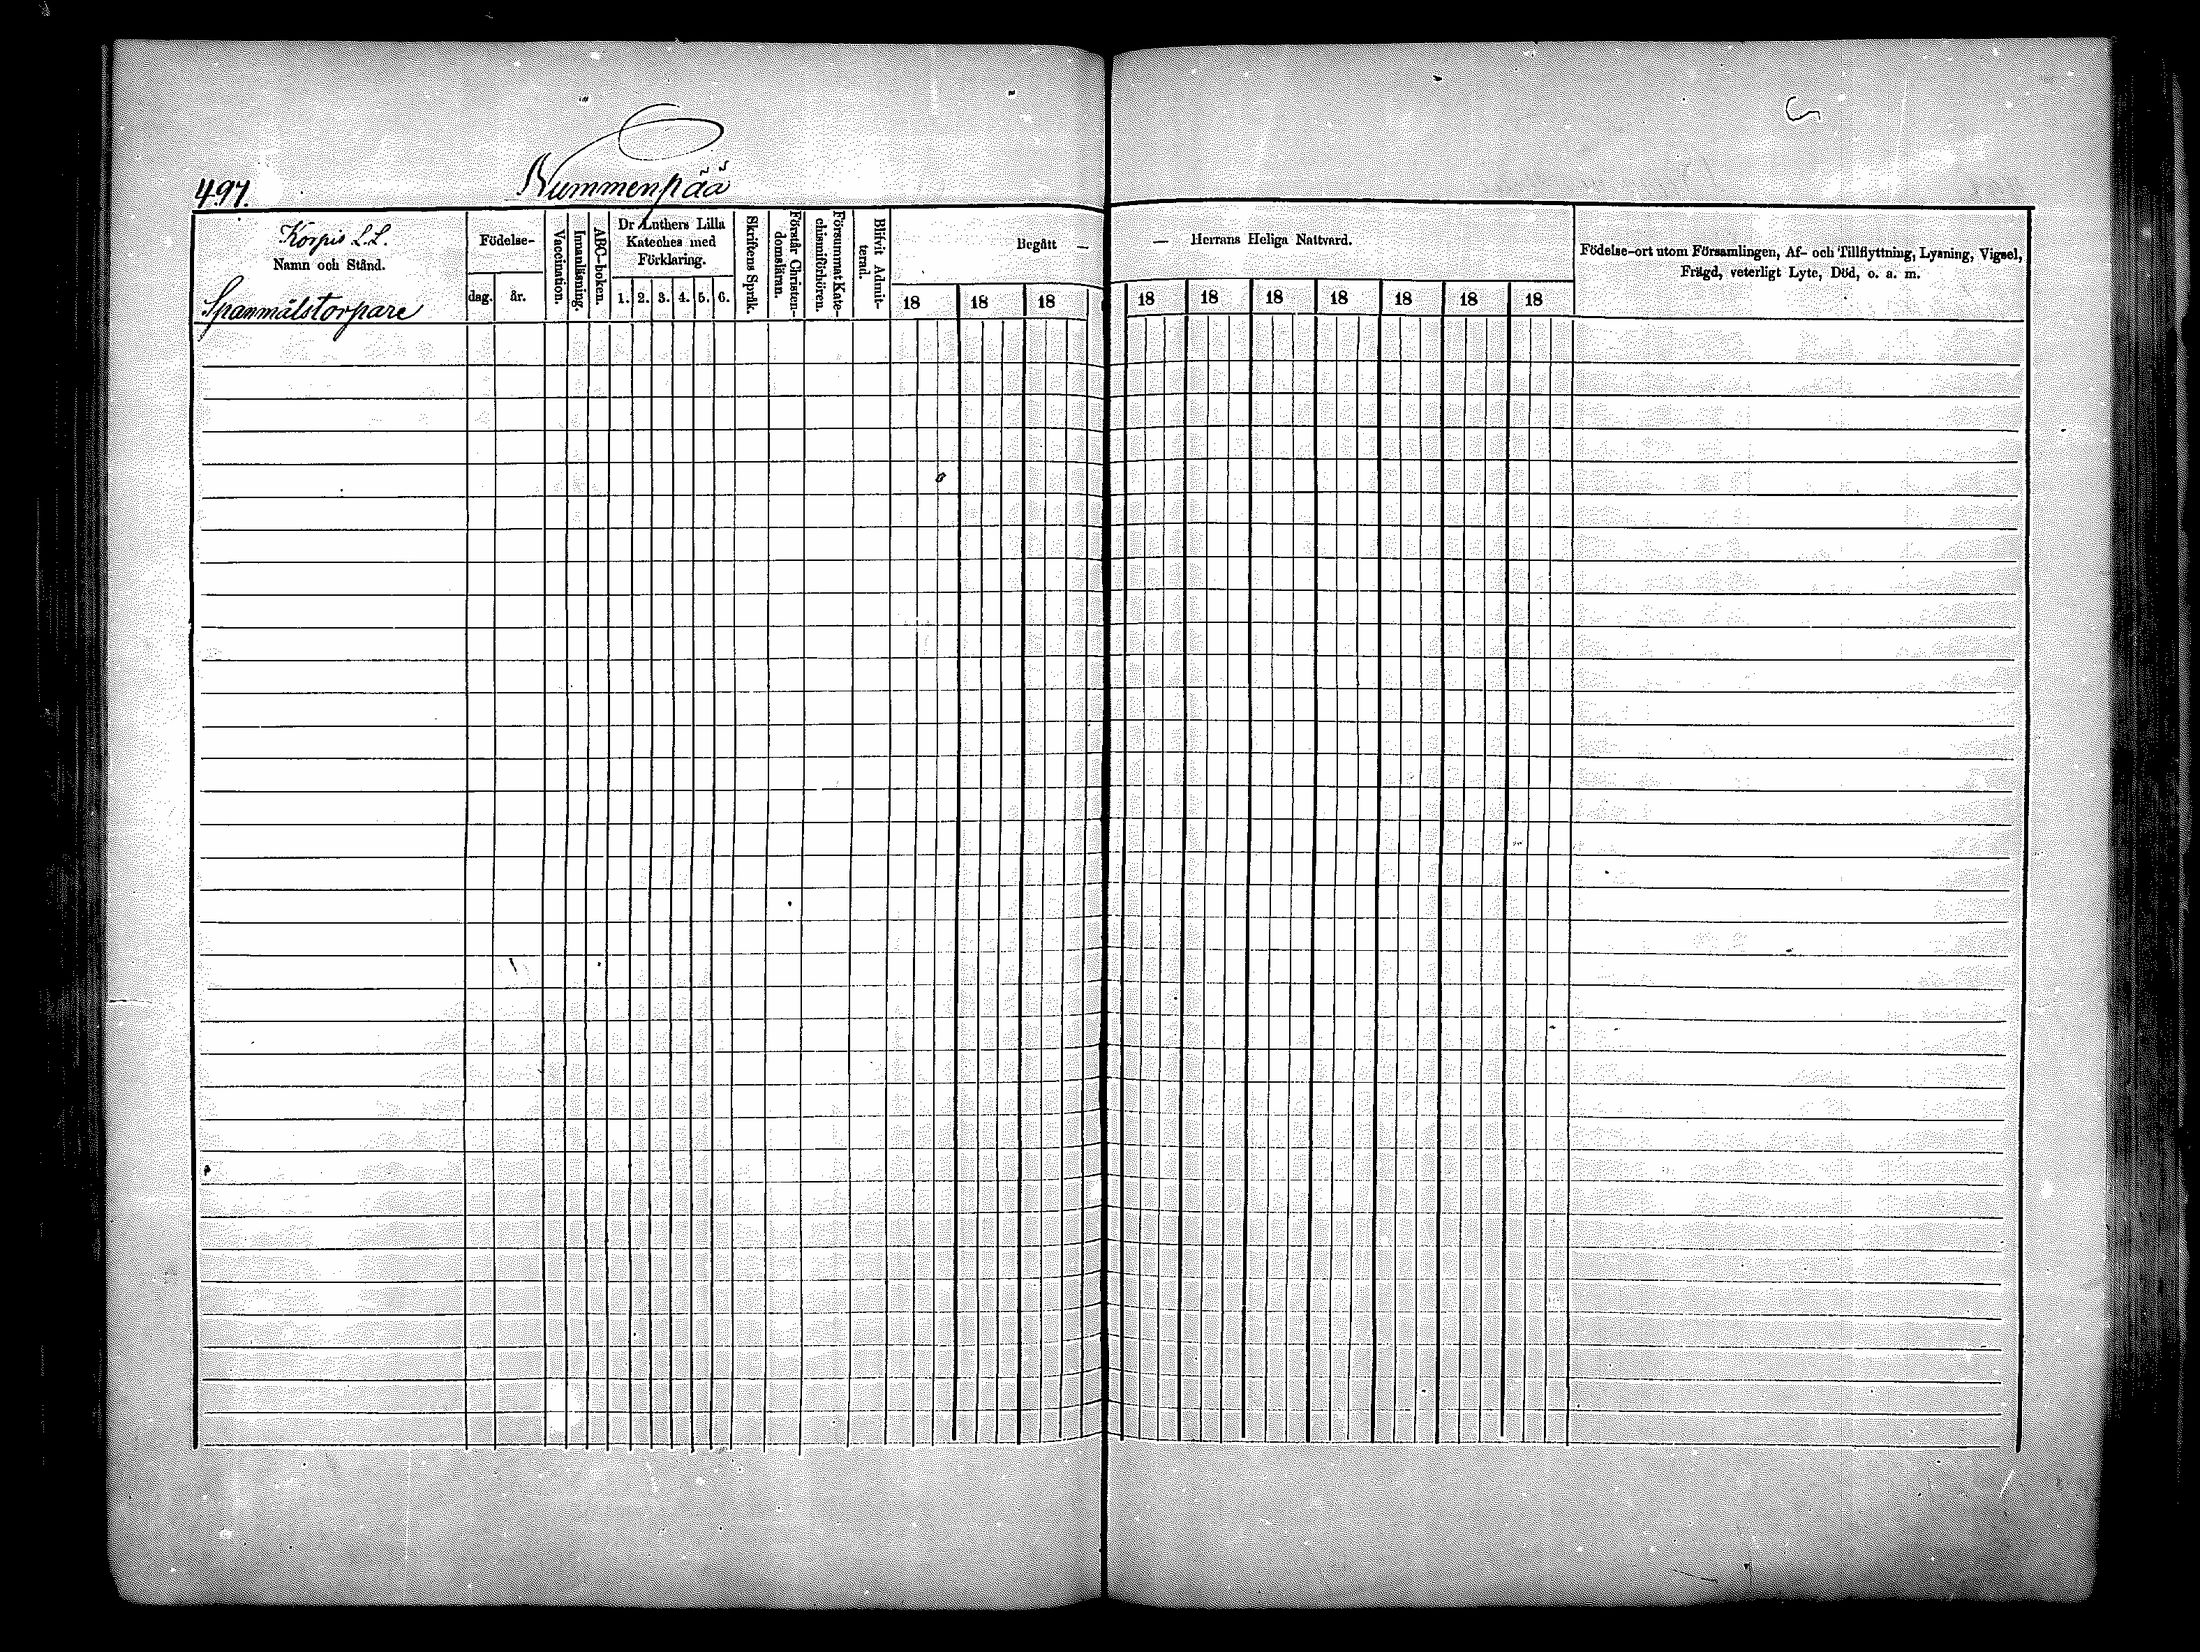 497.
Nummenpää
Korpis L.L.
Namn och Stånd.
Spanmålstorpare
Födelse-
dag.
år.
Vaccination.
Innanläsning.
ABC-boken.
Dr Luthers Lilla
Kateches med
Förklaring.
1. 2. 3. 4. 5. 6.
Skriftens Språk.
Förstår Christen-
domsläran.
Försummat Kate-
chismiförhören.
Blifvit Admit-
terad.
Begått —
18 18 18
— Herrans Heliga Nattvard.
18 18 18 18 18 18 18
Födelse-ort utom Församlingen, Af- och Tillflyttning, Lysning, Vigsel,
Frägd, veterligt Lyte, Död, o. a. m.